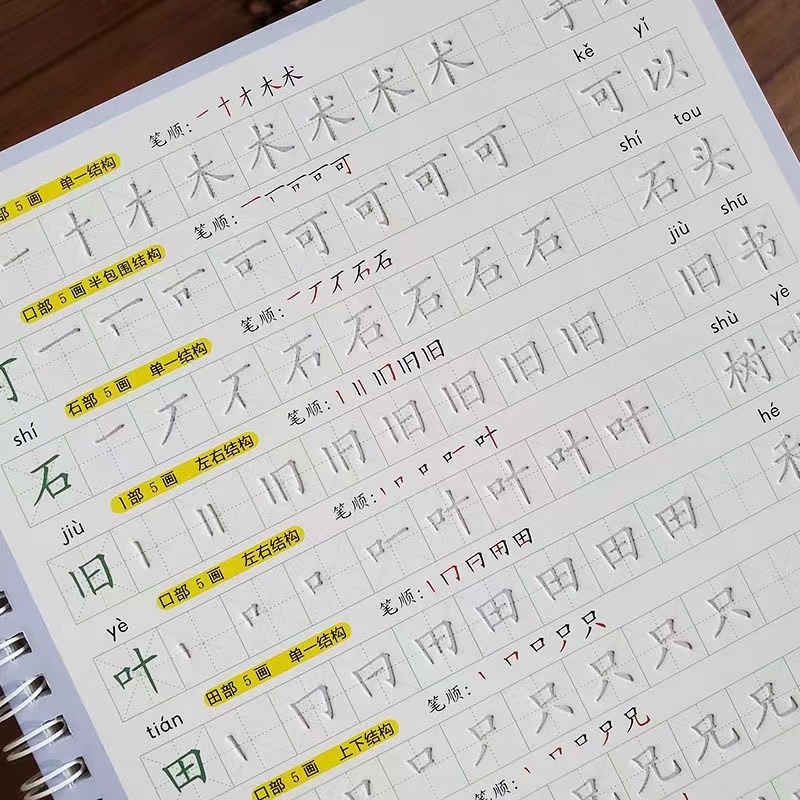 笔顺：一 十 才 木 术
部 5 画 单一结构
一 十 才 木 术 术 术 术
kě yǐ
笔顺：一 丆 丆 口 可
口部 5 画 半包围结构
可 一 一 一 可 可 可 可 可 可以
shí tou
笔顺：一 丆 不 石 石
shí
石部 5 画 单一结构
石 一 丆 不 石 石 石 石 石 石头
jiù shū
笔顺：丨 丨丨 丨冂 旧 旧
jiù
丨部 5 画 左右结构
旧 丨 丨丨 丨冂 旧 旧 旧 旧 旧 旧 旧书
shù yè
笔顺：丨 冂 口 口一 叶
yè
口部 5 画 左右结构
叶 丨 冂 口 口一 叶 叶 叶 叶 叶 树叶
hé
笔顺：丨 冂 日 田 田
tián
田部 5 画 单一结构
田 丨 冂 日 田 田 田 田 田 田
笔顺：丨 冂 口 尸 只
口部 5 画 上下结构
只 只 只 只 只
笔顺：丨 冂 口 尸 兄
兄 兄 兄